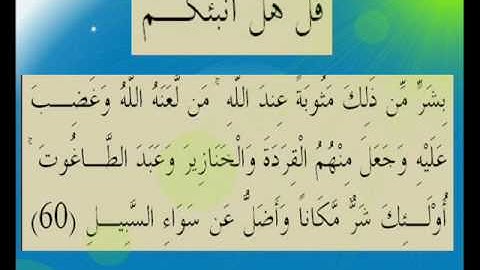 قُلْ هَلْ أُنَبِّئُكُـــم
بِشَرٍّ مِّن ذَلِكَ مَثُوبَةً عِندَ اللّهِ ۚ مَن لَّعَنَهُ اللّهُ وَغَضِــبَ
عَلَيْهِ وَجَعَلَ مِنْهُمُ الْقِرَدَةَ وَالْخَنَازِيرَ وَعَبَدَ الطَّــاغُوتَ ۚ
أُوْلَــئِكَ شَرٌّ مَّكَاناً وَأَضَلُّ عَن سَوَاءِ السَّبِيــلِ (60)